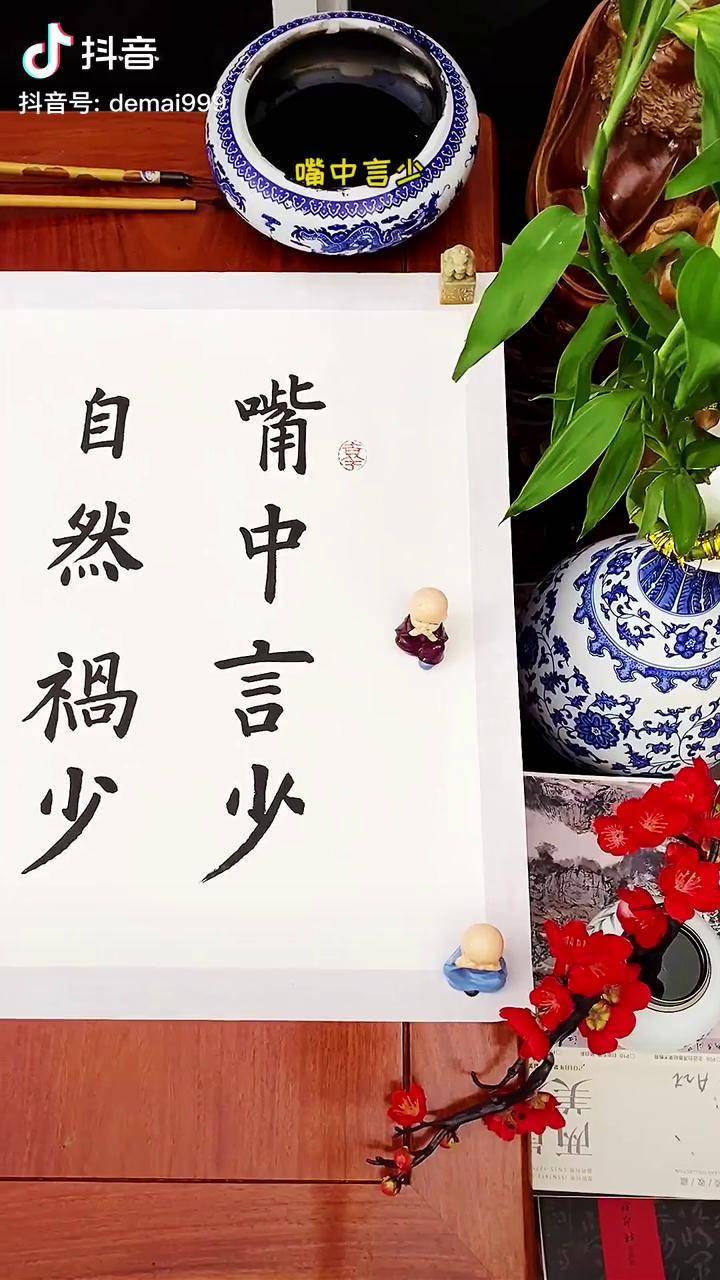 抖音
抖音号: demai999
嘴中言少
嘴中言少
自然禍少
美